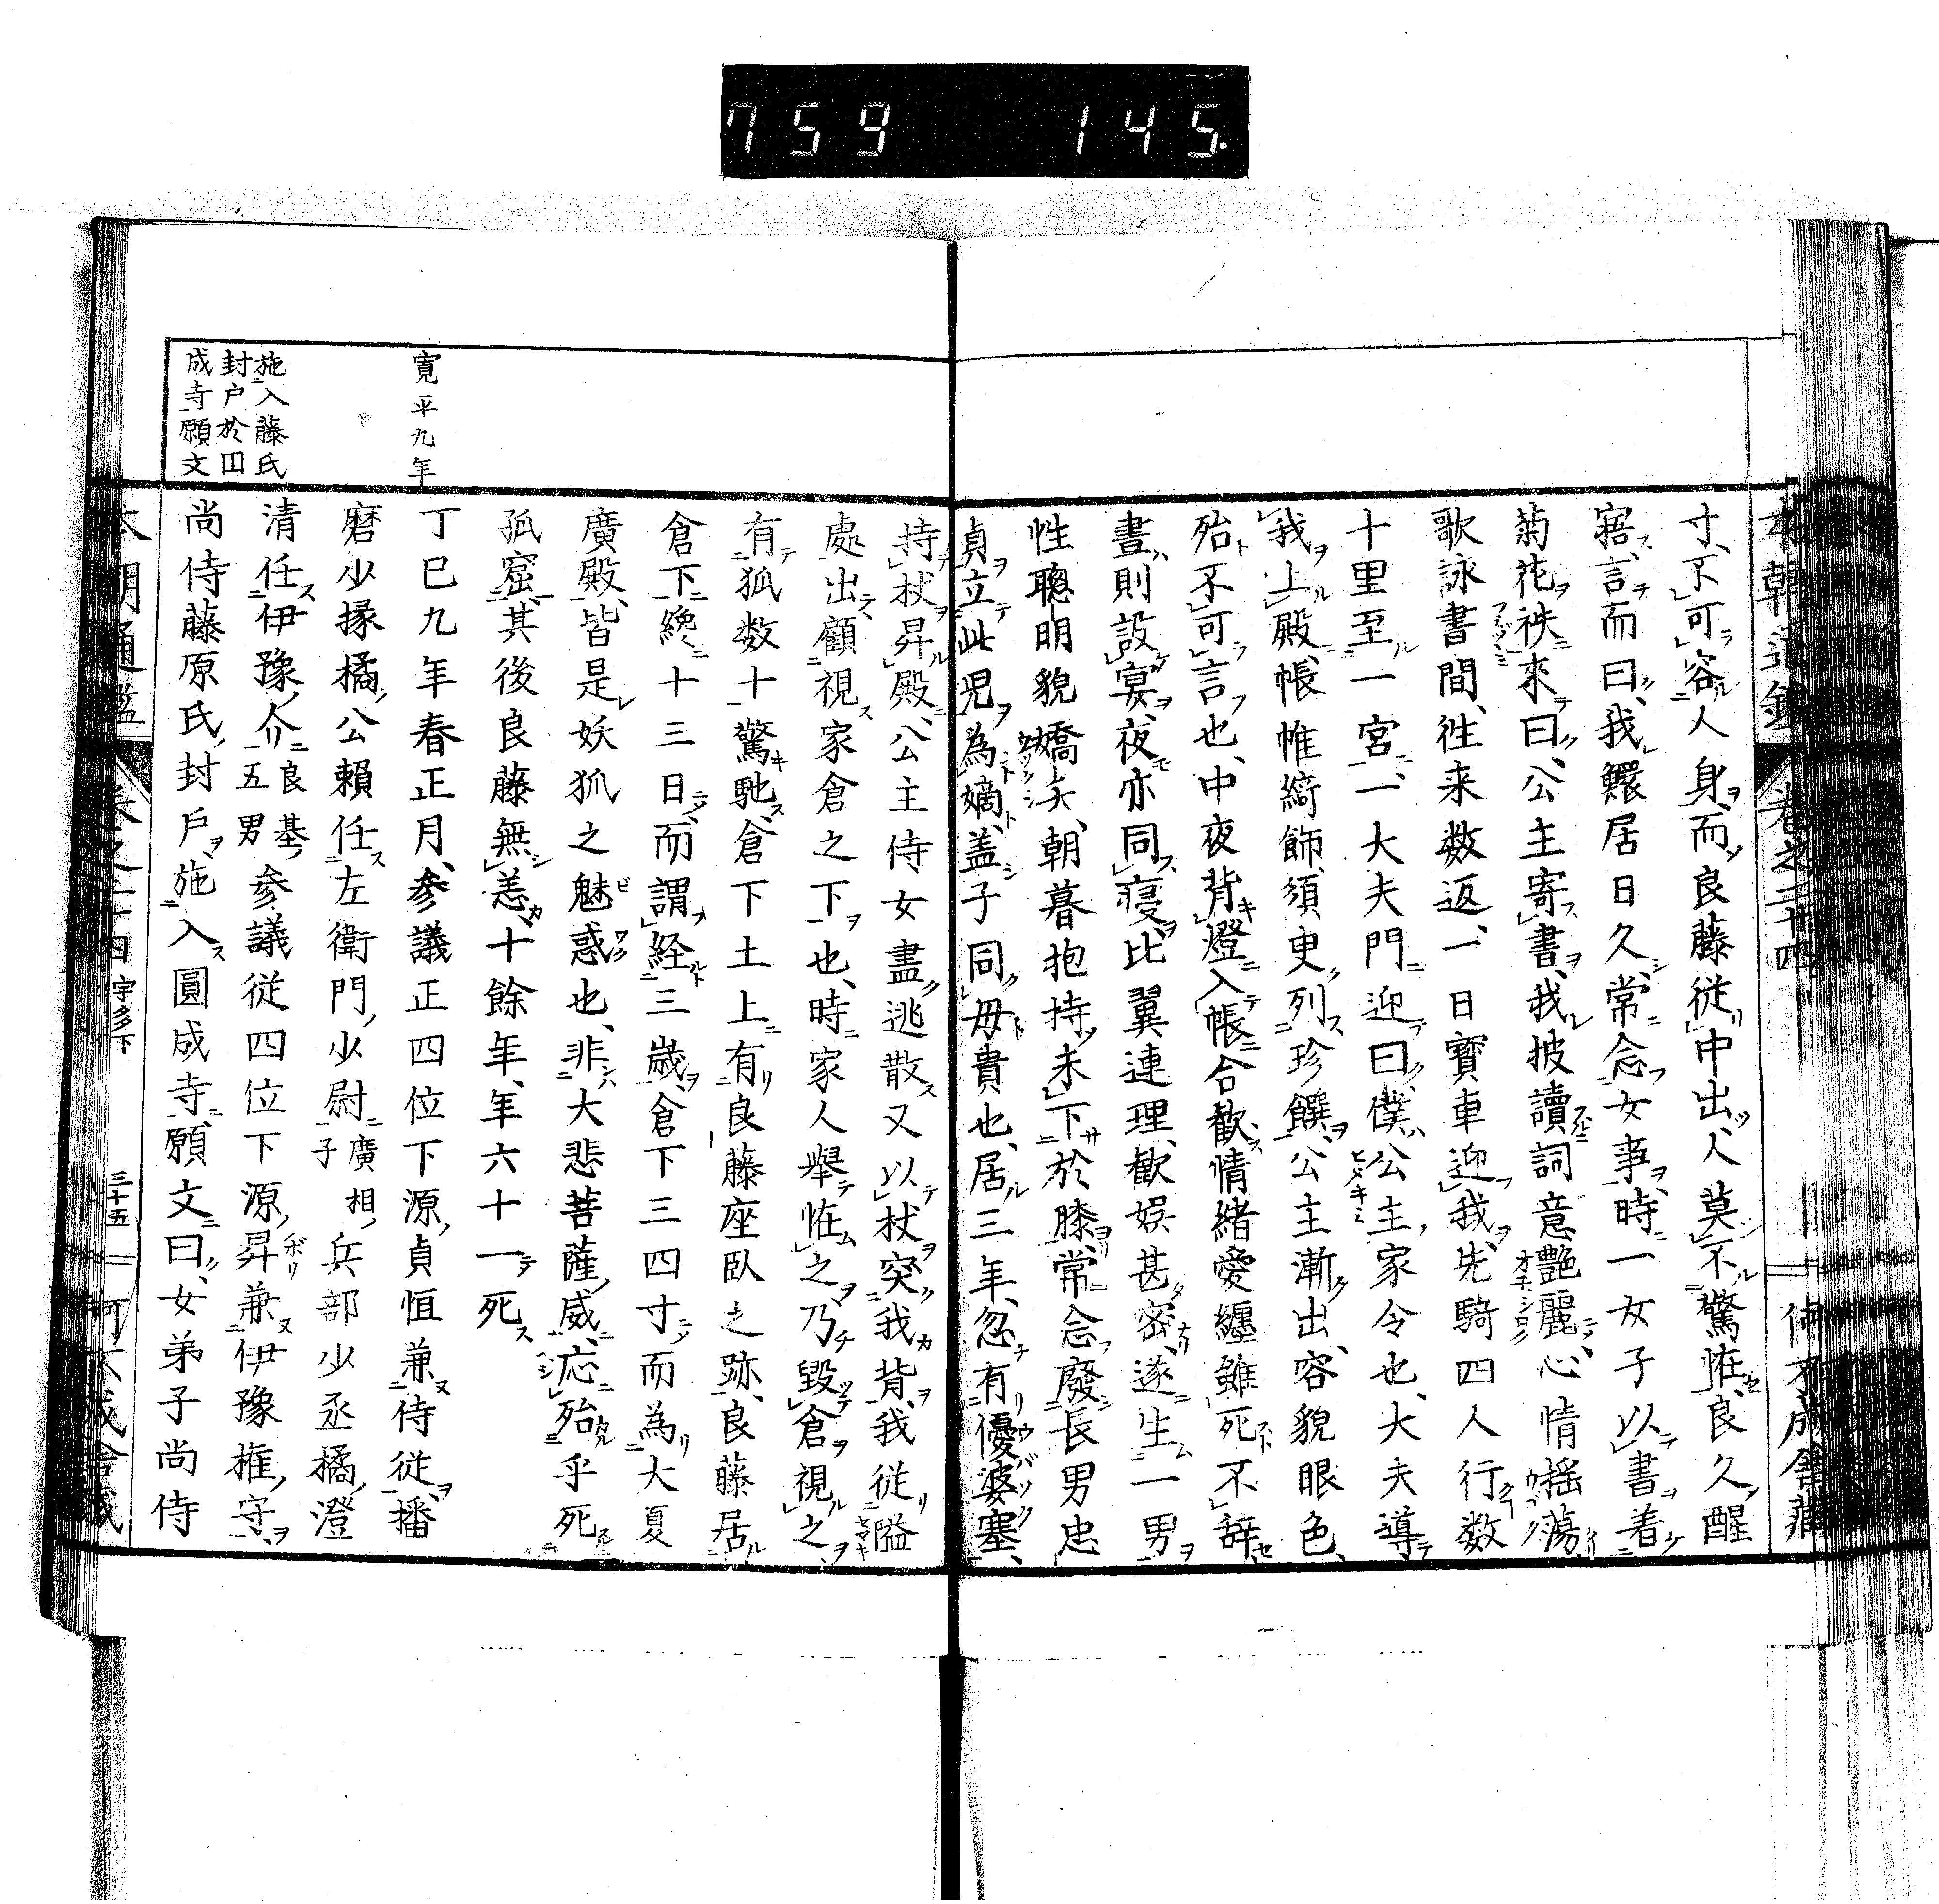 759 145.
寸、不可容人身、而良藤從中出、人莫不驚恠、良久醒
寤、言而曰、我鰥居日久、常念女事、時一女子以書着
菊花秩來曰、公主寄書、我披讀詞意艶麗、心情搖蕩、
歌詠書間、徃来数返、一日寳車迎我、先騎四人行数
十里至一宮、一大夫門迎曰、僕公主家令也、大夫導
我上殿、帳帷綺飾、須臾列珍饌、公主漸出、容貌眼色、
殆不可言也、中夜背燈入帳合歡、情緒愛纏雖死不辞、
晝則設宴、夜亦同寢、比翼連理、歡娯甚密、遂生一男、
性聰明貌嬌美、朝暮抱持、未下於膝、常念廢長男忠
貞立此児為嫡、盖子同毋貴也、居三年、忽有優婆塞、
持杖昇殿、公主侍女盡逃散又以杖突我背、我從隘
處出、顧視家倉之下也、時家人舉恠之、乃毀倉視之、
有狐数十驚馳、倉下土上有良藤座臥之跡、良藤居
倉下纔十三日、而謂経三歳、倉下三四寸而為大夏
廣殿、皆是妖狐之魅惑也、非大悲菩薩威、応殆乎死
孤窟、其後良藤無恙、十餘年、年六十一死
寛平九年
丁巳九年春正月、参議正四位下源貞恒兼侍従、播
磨少掾橘公頼任左衛門少尉 廣相子 兵部少丞橘澄
清任伊豫介 良基五男 参議従四位下源昇兼伊豫権守、
施入藤氏
封户於円
成寺願文
尚侍藤原氏、封户、施入圓成寺、願文曰、女弟子尚侍
本朝通鑑 卷之二十四 宇多下 三十五